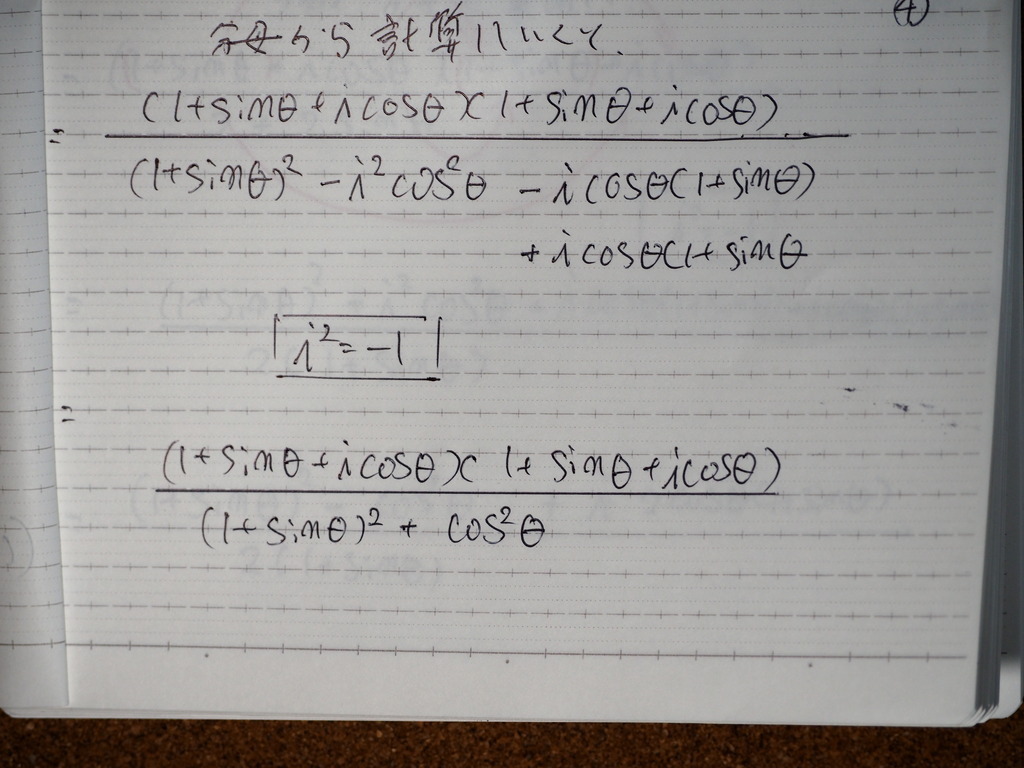 ④
分母から計算していくと.
= (1+sinθ+icosθ)(1+sinθ+icosθ)
(1+sinθ)² -i²cos²θ -icosθ(1+sinθ)
+icosθ(1+sinθ
i²=-1
=
(1+sinθ+icosθ)(1+sinθ+icosθ)
(1+sinθ)² + cos²θ